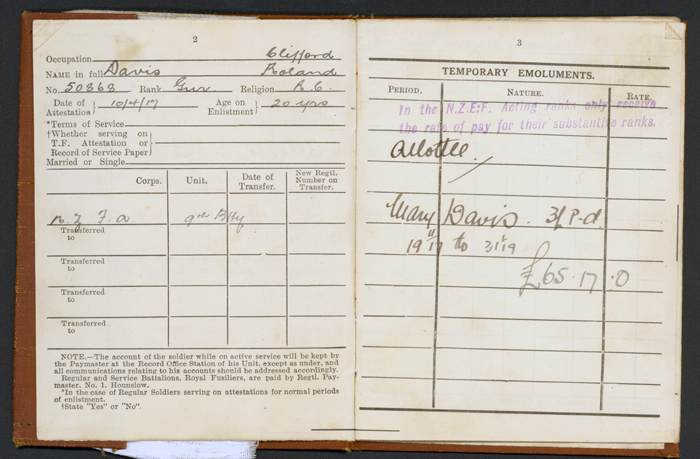 2
Occupation
Clifford
NAME in full Davis Roland
No. 50868 Rank Gnr. Religion R.C.
Date of Attestation } 10/4/17 Age on Enlistment } 20 yrs
*Terms of Service
†Whether serving on
T.F. Attestation or
Record of Service Paper
Married or Single
Corps. Unit. Date of Transfer. New Regtl. Number on Transfer.
N Z F. A 9th Btty
Transferred to
Transferred to
Transferred to
Transferred to
NOTE.—The account of the soldier while on active service will be kept by
the Paymaster at the Record Office Station of his Unit, except as under, and
all communications relating to his accounts should be addressed accordingly.
Regular and Service Battalions, Royal Fusiliers, are paid by Regtl. Pay-
master, No. 1, Hounslow.
*In the case of Regular Soldiers serving on attestations for normal periods
of enlistment.
†State "Yes" or "No".
3
TEMPORARY EMOLUMENTS.
PERIOD. NATURE. RATE.
In the N.Z.E.F. Acting ranks only receive
the rate of pay for their substantive ranks.
Allottee
Mary Davis. 3/ P-d.
to
£65.17.0